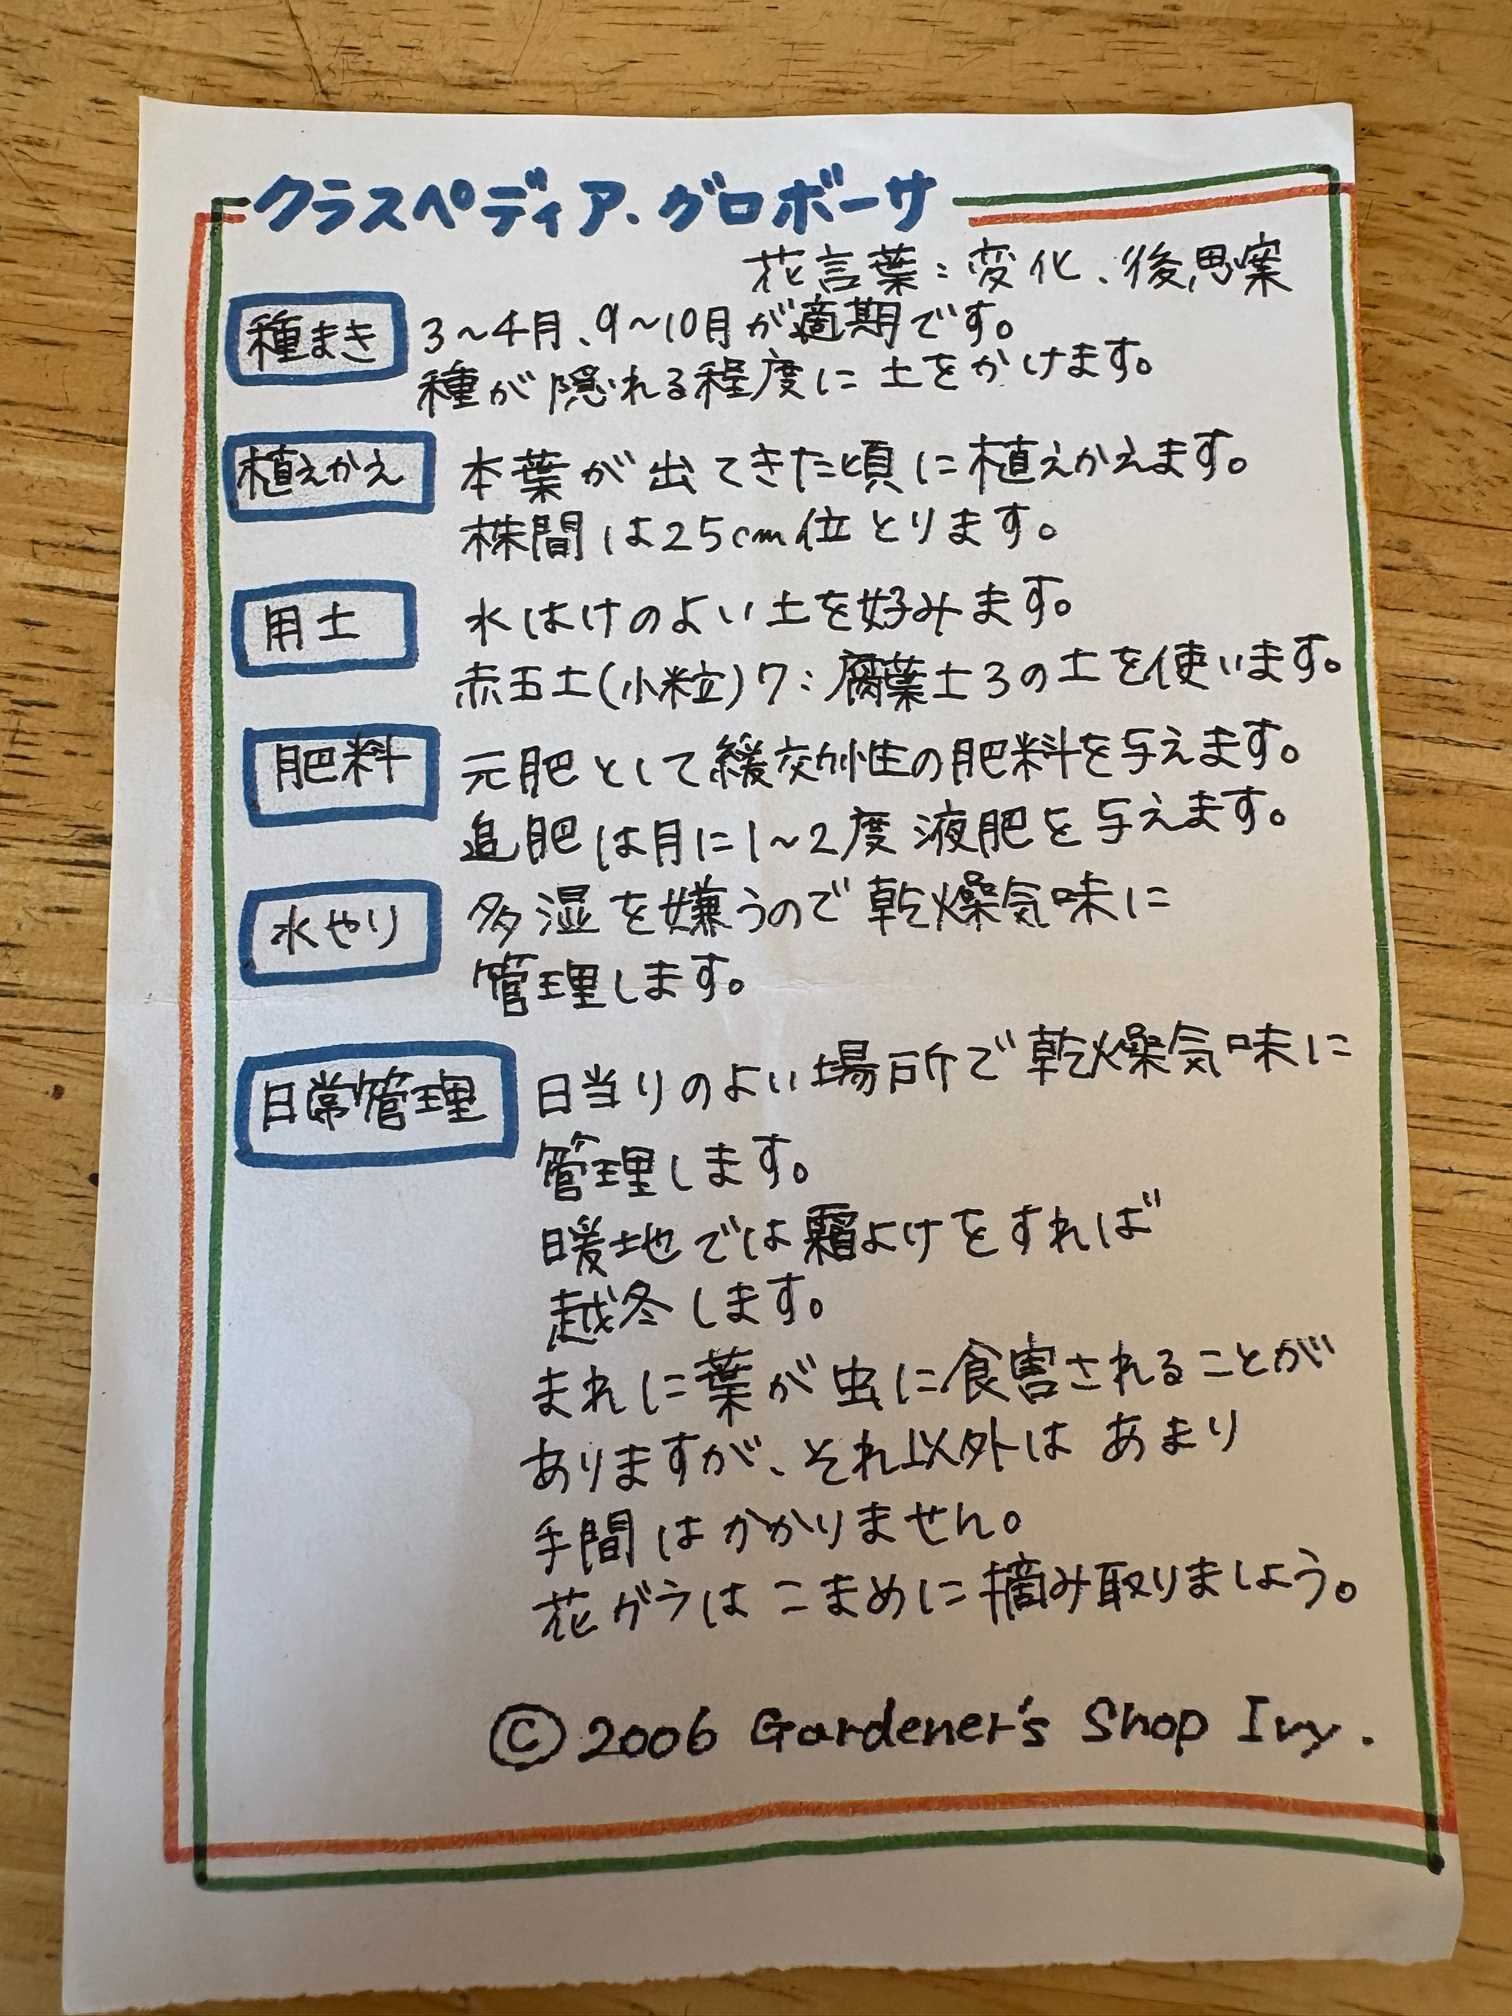 クラスペディア・グロボーサ
花言葉:変化、後思案
種まき 3〜4月、9〜10月が適期です。
種が隠れる程度に土をかけます。
植えかえ 本葉が出てきた頃に植えかえます。
株間は25cm位とります。
用土 水はけのよい土を好みます。
赤玉土(小粒)7:腐葉土3の土を使います。
肥料 元肥として緩効性の肥料を与えます。
追肥は月に1〜2度液肥を与えます。
水やり 多湿を嫌うので乾燥気味に
管理します。
日常管理 日当りのよい場所で乾燥気味に
管理します。
暖地では霜よけをすれば
越冬します。
まれに葉が虫に食害されることが
ありますが、それ以外はあまり
手間はかかりません。
花ガラはこまめに摘み取りましょう。
©2006 Gardener's Shop Ivy.